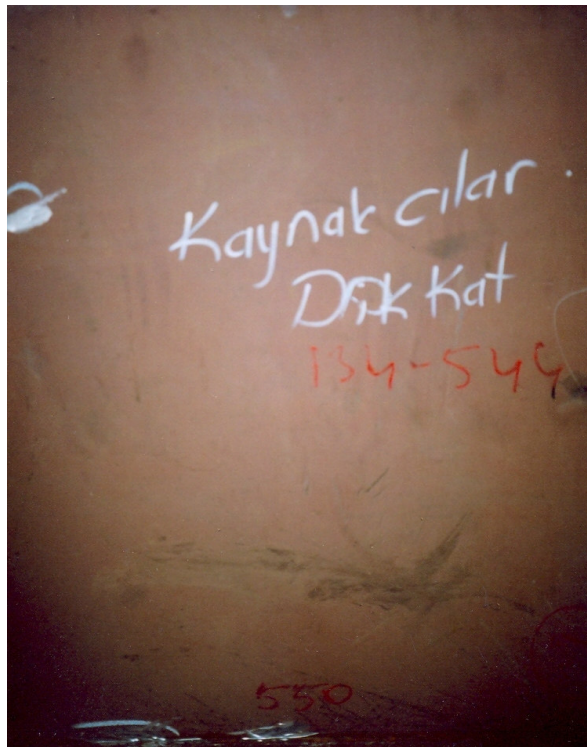 Kaynak cılar.
Dikkat
134-544
550